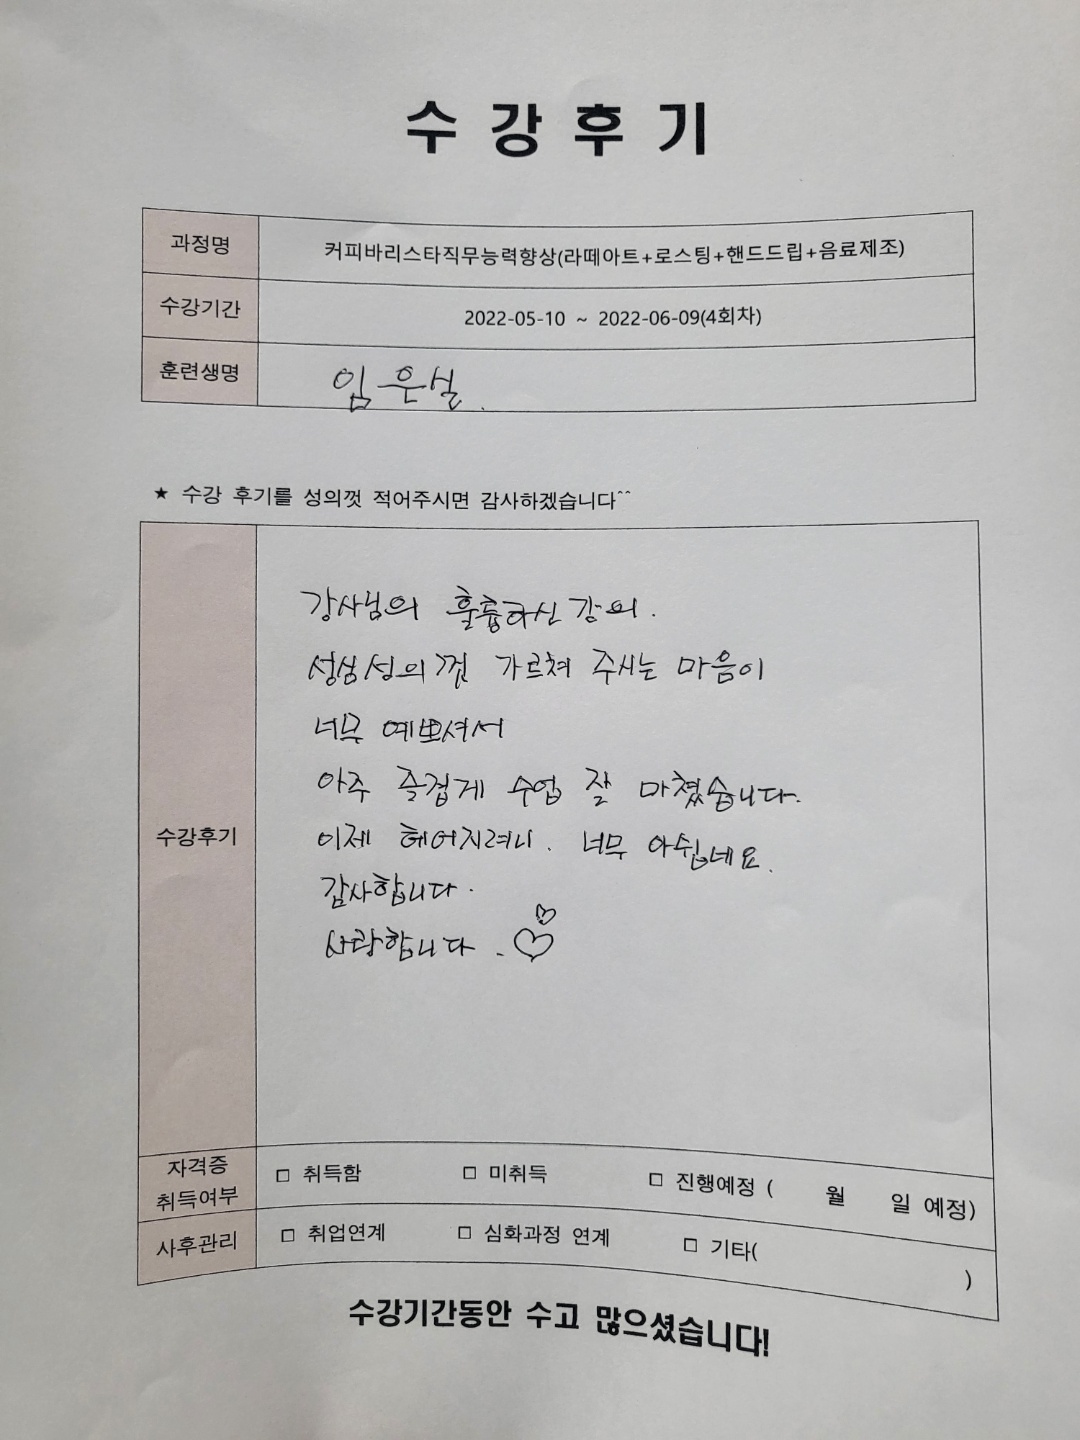 수강후기
과정명 커피바리스타직무능력향상(라떼아트+로스팅+핸드드립+음료제조)
수강기간 2022-05-10 ~ 2022-06-09(4회차)
훈련생명 임은설.
★ 수강 후기를 성의껏 적어주시면 감사하겠습니다^^
강사님의 훌륭하신 강의.
성심성의껏 가르쳐 주시는 마음이
너무 예쁘셔서
아주 즐겁게 수업 잘 마쳤습니다.
수강후기
이제 헤어지려니. 너무 아쉽네요.
감사합니다.
사랑합니다. ♡♡
자격증 취득여부 □ 취득함 □ 미취득 □ 진행예정 ( 월 일 예정)
사후관리 □ 취업연계 □ 심화과정 연계 □ 기타( )
수강기간동안 수고 많으셨습니다!